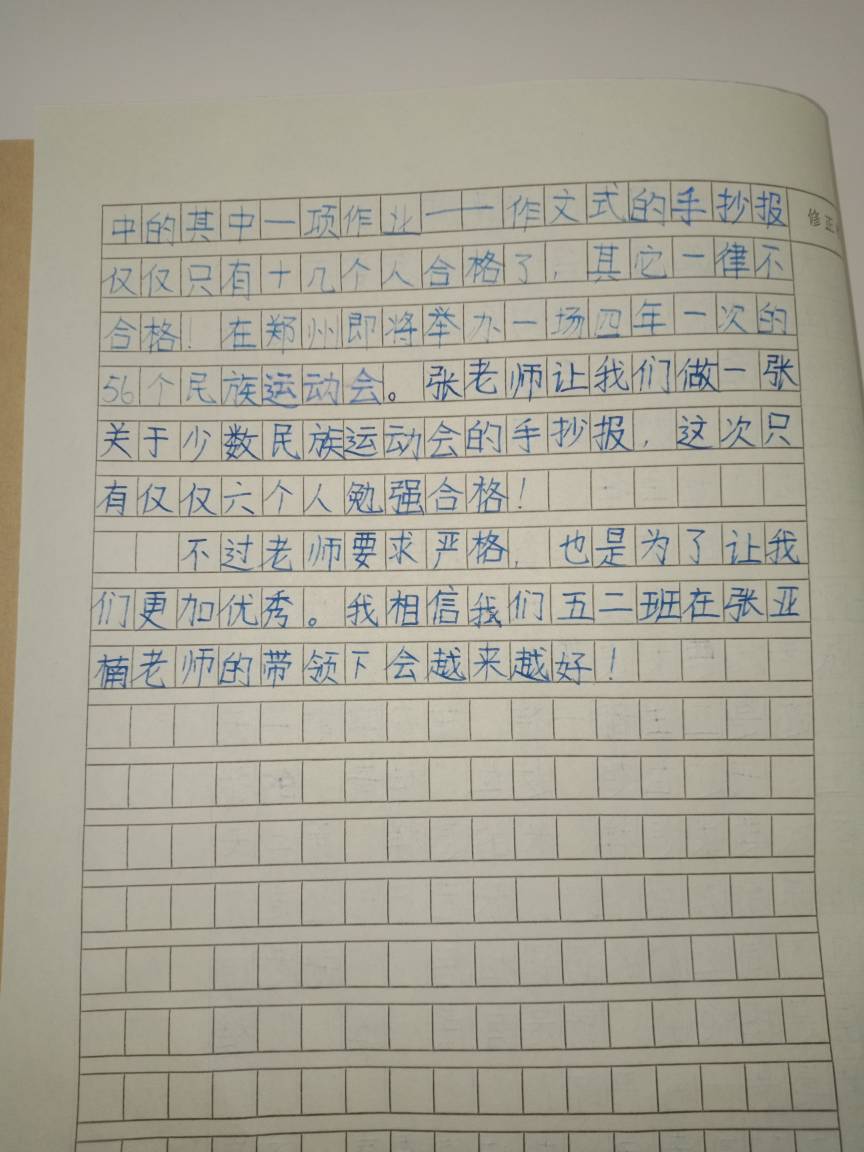 中的其中一项作业——作文式的手抄报
修正
仅仅只有十几个人合格了，其它一律不
合格！在郑州即将举办一场四年一次的
56个民族运动会。张老师让我们做一张
关于少数民族运动会的手抄报，这次只
有仅仅六个人勉强合格！
不过老师要求严格，也是为了让我
们更加优秀。我相信我们五二班在张亚
楠老师的带领下会越来越好！